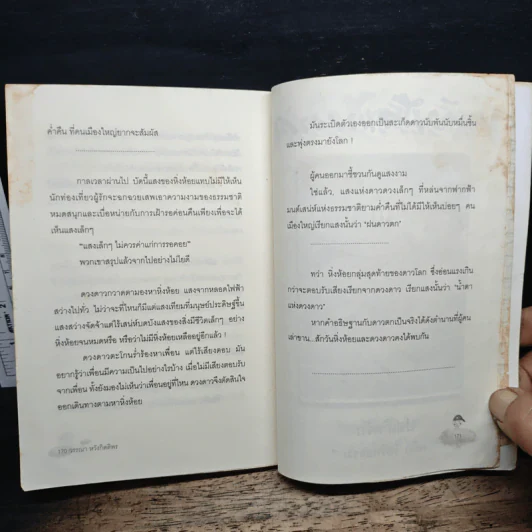 ค่ำคืน ที่คนเมืองใหญ่ยากจะสัมผัส
กาลเวลาผ่านไป บัดนี้แสงของหิ่งห้อยแทบไม่มีให้เห็น
นักท่องเที่ยวผู้รักจะฉกฉวยเสพเอาความงามของธรรมชาติ
หมดสนุกและเบื่อหน่ายกับการเฝ้ารอค่อนคืนเพียงเพื่อจะได้
เห็นแสงเล็กๆ
"แสงเล็กๆ ไม่ควรค่าแก่การรอคอย"
พวกเขาสรุปแล้วจากไปอย่างไม่ไยดี
ดวงดาวกวาดตามองหาหิ่งห้อย แสงจากหลอดไฟฟ้า
สว่างไปทั่ว ไม่ว่าจะที่ไหนก็มีแต่แสงเทียมที่มนุษย์ประดิษฐ์ขึ้น
แสงสว่างจัดจ้าแต่ไร้เสน่ห์บดบังแสงของสิ่งมีชีวิตเล็กๆ อย่าง
หิ่งห้อยจนหมดหรือ หรือว่าไม่มีหิ่งห้อยเหลืออยู่อีกแล้ว !
ดวงดาวตะโกนร่ำร้องหาเพื่อน แต่ไร้เสียงตอบ มัน
อยากรู้ว่าเพื่อนมีความเป็นไปอย่างไรบ้าง เมื่อไม่มีเสียงตอบรับ
จากเพื่อน ทั้งยังมองไม่เห็นว่าเพื่อนอยู่ที่ไหน ดวงดาวจึงตัดสินใจ
ออกเดินทางตามหาหิ่งห้อย
มันระเบิดตัวเองออกเป็นสะเก็ดดาวนับพันนับหมื่นชิ้น
และพุ่งตรงมายังโลก !
ผู้คนออกมาชี้ชวนกันดูแสงงาม
ใช่แล้ว, แสงแห่งดาวดวงเล็กๆ ที่หล่นจากฟากฟ้า
มนต์เสน่ห์แห่งธรรมชาติยามค่ำคืนที่ไม่ได้มีให้เห็นบ่อยๆ คน
เมืองใหญ่เรียกแสงนั้นว่า "ฝนดาวตก"
ทว่า หิ่งห้อยกลุ่มสุดท้ายของดาวโลก ซึ่งอ่อนแรงเกิน
กว่าจะตอบรับเสียงเรียกจากดวงดาว เรียกแสงนั้นว่า "น้ำตา
แห่งดวงดาว"
หากคำอธิษฐานกับดาวตกเป็นจริงได้ดังตำนานที่ผู้คน
เล่าขาน...สักวันหิ่งห้อยและดวงดาวคงได้พบกัน